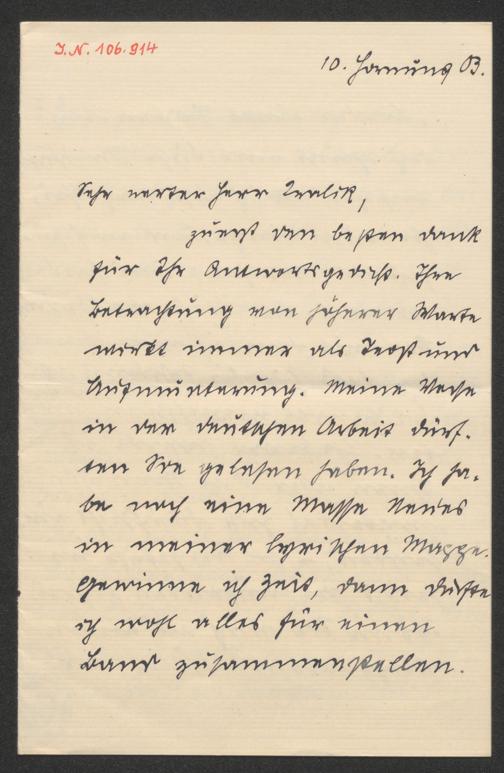 J.N. 106.914
10. Hornung 03.
Sehr werter Herr Kralik,
zuerst den besten Dank
für Ihr Antwortsgedicht. Ihre
Betrachtung von höherer Warte
wirkt immer als Trost und
Aufmunterung. Meine Verse
in der deutschen Arbeit dürf-
ten Sie gelesen haben. Ich ha-
be noch eine Masse Neues
in meiner lyrischen Mappe.
Gewinne ich Zeit, dann dürfte
ich wohl alles für einen
Band zusammenstellen.